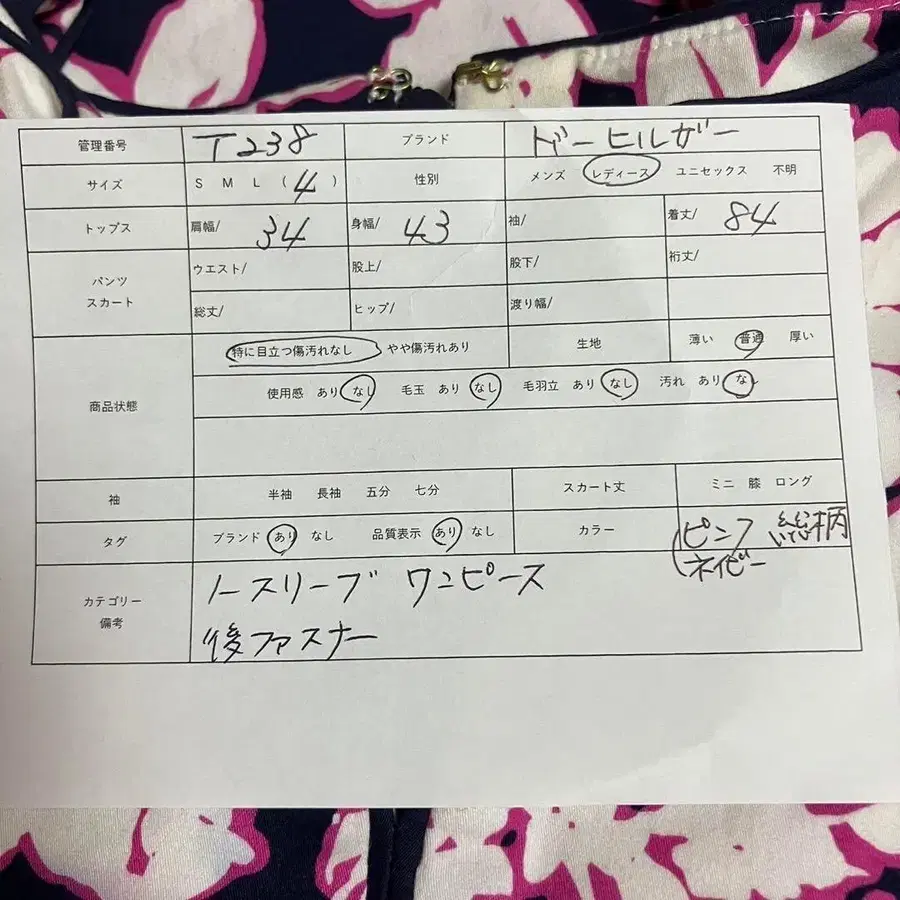 管理番号 T238 ブランド ドーヒルガー
サイズ S M L ( 4 ) 性別 メンズ レディース ユニセックス 不明
トップス 肩幅/ 34 身幅/ 43 袖/ 着丈/ 84
パンツ スカート ウエスト/ 股上/ 股下/ 裄丈/
総丈/ ヒップ/ 渡り幅/
商品状態 特に目立つ傷汚れなし やや傷汚れあり 生地 薄い 普通 厚い
使用感 あり なし 毛玉 あり なし 毛羽立 あり なし 汚れ あり な
袖 半袖 長袖 五分 七分 スカート丈 ミニ 膝 ロング
タグ ブランド あり なし 品質表示 あり なし カラー ピンク 総柄
ネイビー
カテゴリー 備考 ノースリーブ ワンピース
後ファスナー